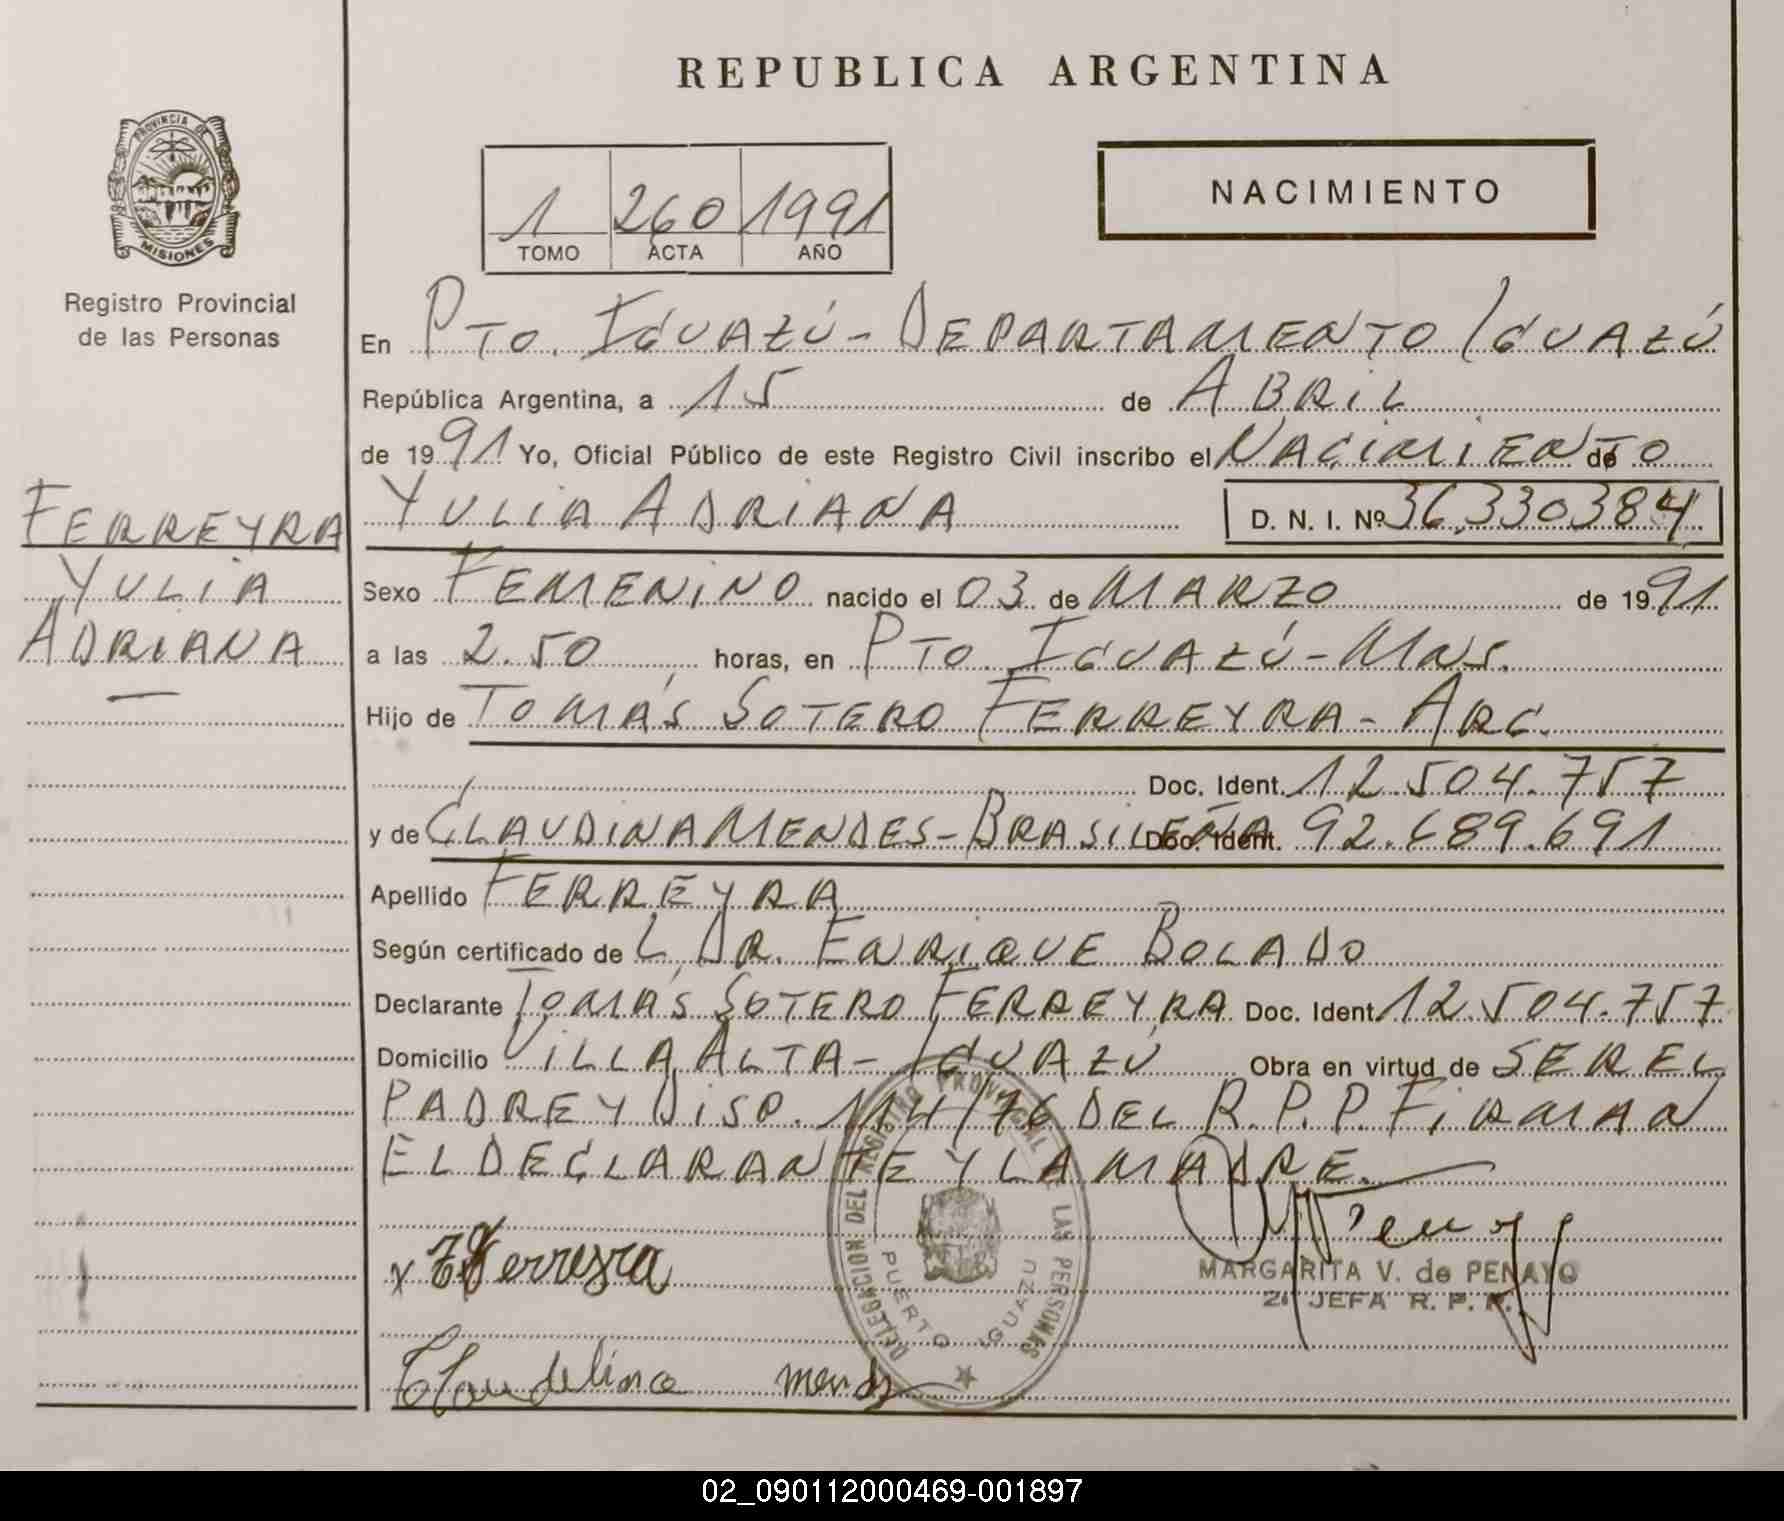 REPUBLICA ARGENTINA
PROVINCIA DE
MISIONES
Registro Provincial
de las Personas
1 260 1991
TOMO ACTA AÑO
NACIMIENTO
En PTO. IGUAZÚ - DEPARTAMENTO IGUAZÚ
República Argentina, a 15 de ABRIL
de 1991 Yo, Oficial Público de este Registro Civil inscribo el NACIMIENTO de
YULIA ADRIANA D. N. I. Nº 36.330.384
FERREYRA
YULIA
ADRIANA
Sexo FEMENINO nacido el 03 de MARZO de 1991
a las 2.50 horas, en PTO. IGUAZÚ - MNS.
Hijo de TOMÁS SOTERO FERREYRA - ARG.
Doc. Ident. 12.504.757
y de CLAUDINA MENDES - BRASILEÑA Doc. Ident. 92.689.691
Apellido FERREYRA
Según certificado de L. DR. ENRIQUE BOLADO
Declarante TOMÁS SOTERO FERREYRA Doc. Ident. 12.504.757
Domicilio VILLA ALTA - IGUAZÚ Obra en virtud de SER EL
PADRE Y DISP. 114/76 DEL R.P.P. FIRMAN
EL DECLARANTE Y LA MADRE.
DELEGACION DEL REGISTRO PROVINCIAL DE LAS PERSONAS
PUERTO IGUAZU
x T Ferreyra
MARGARITA V. de PENAYO
2ª JEFA R. P. P.
Claudelina mends
02_090112000469-001897